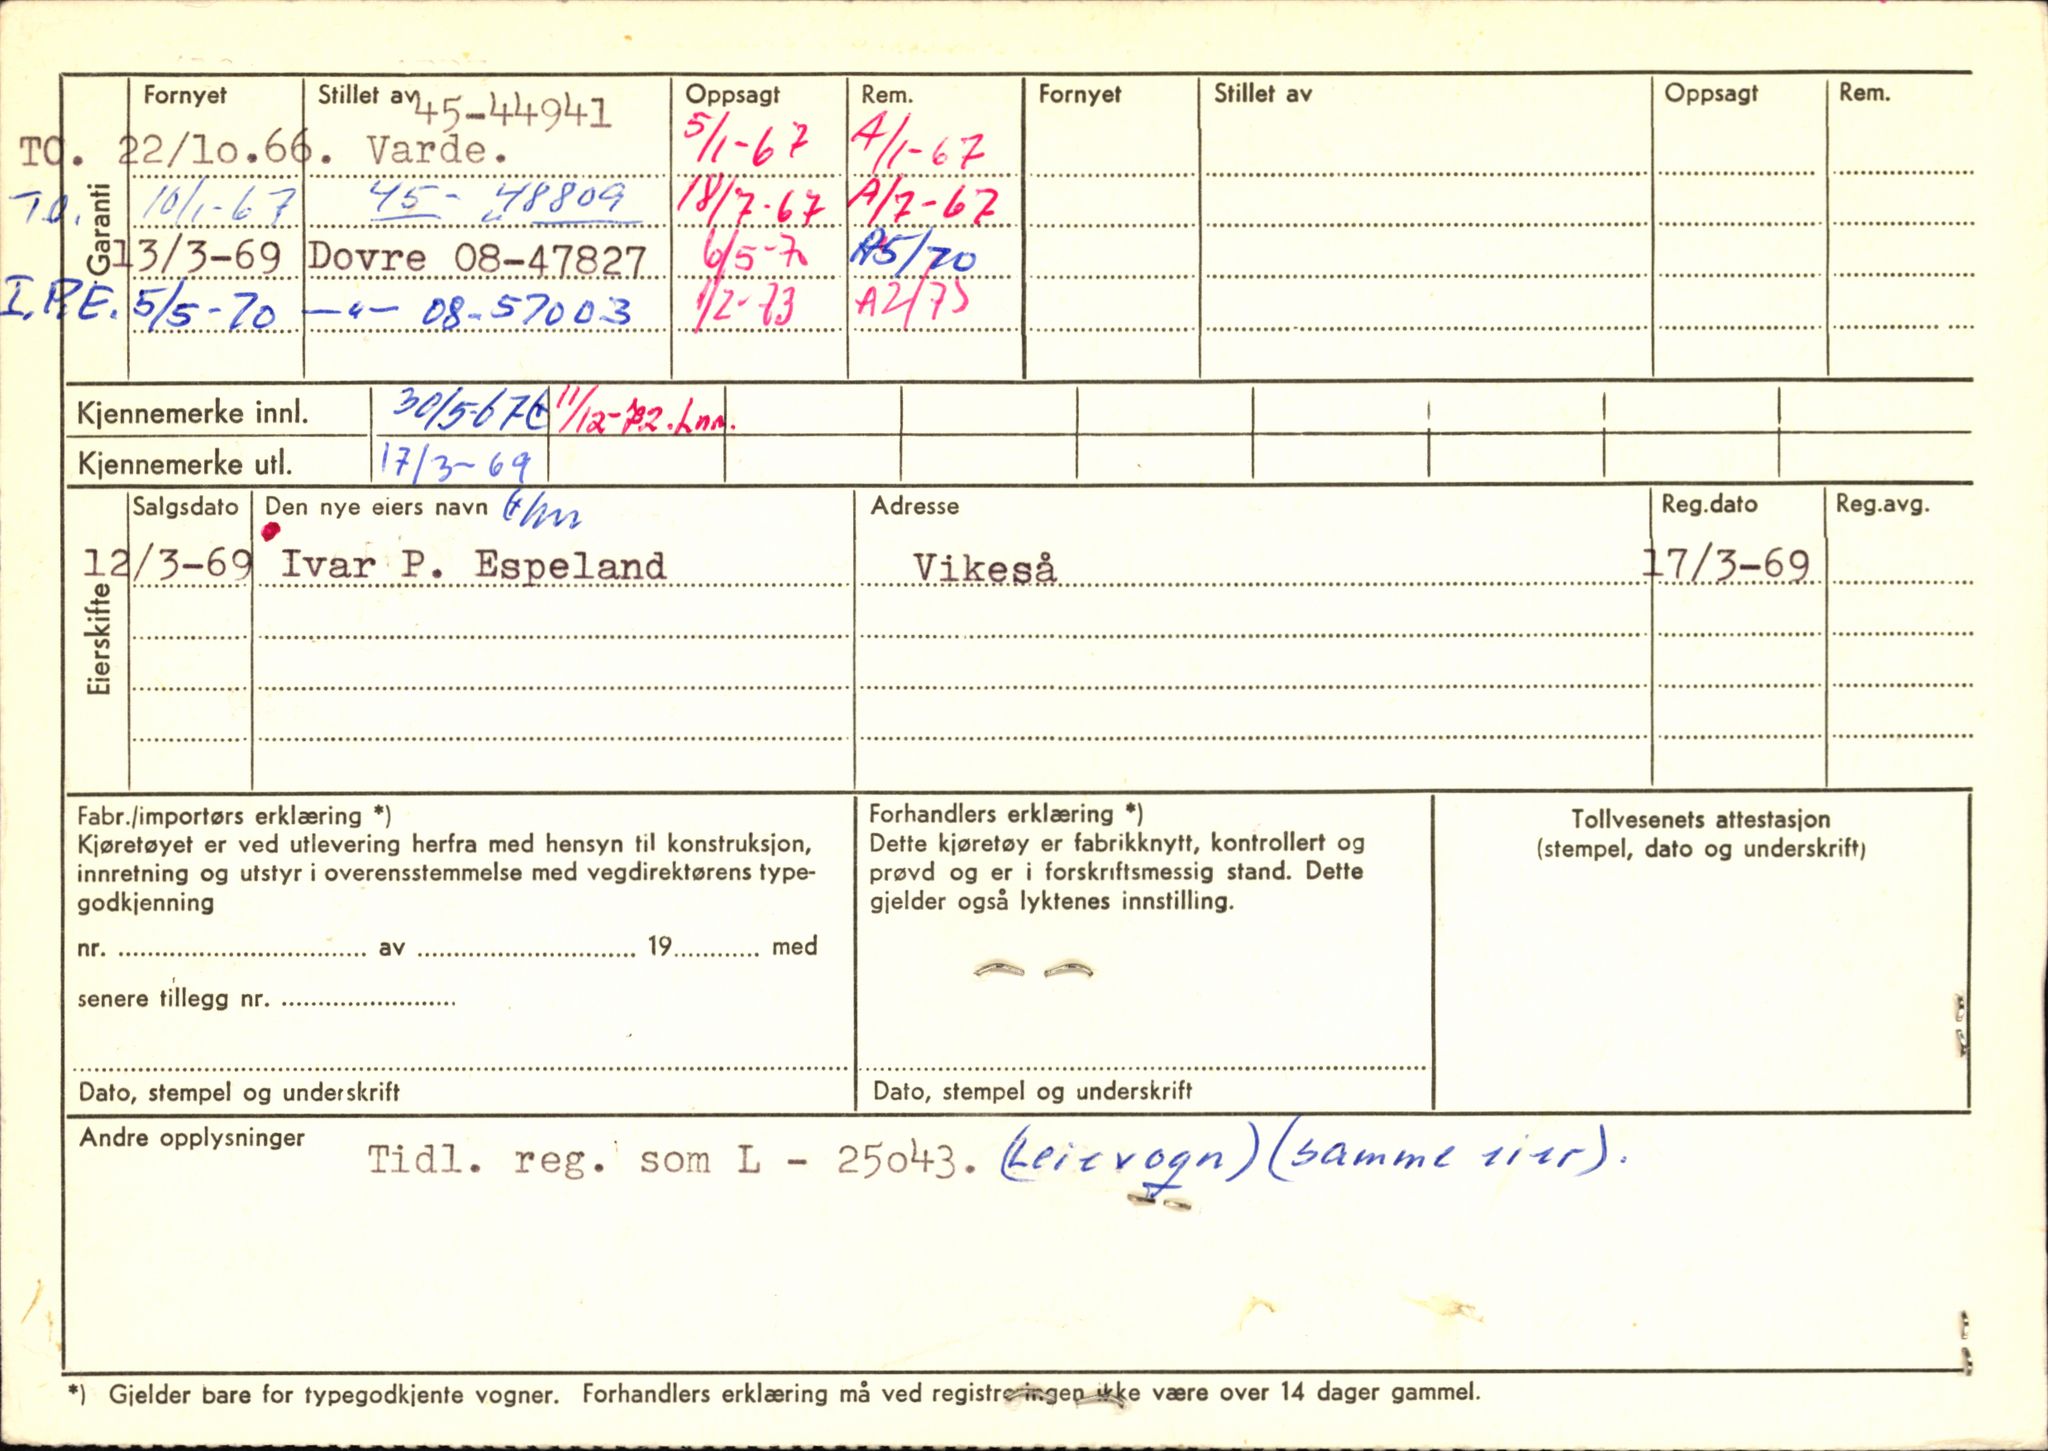 Garanti
Fornyet Stillet av 45-44941 Oppsagt Rem. Fornyet Stillet av Oppsagt Rem.
TO. 22/lo.66. Varde. 5/1-67 A/1-67
TO. 10/1-67 45- 48809 18/7-67 A/7-67
13/3-69 Dovre 08-47827 6/5-70 A5/70
I.P.E. 5/5-70 —"— 08-57003 1/2-73 A2/73
Kjennemerke innl. 30/5-67 11/12-72. Lnn.
Kjennemerke utl. 17/3-69
Eierskifte
Salgsdato Den nye eiers navn Adresse Reg.dato Reg.avg.
12/3-69 Ivar P. Espeland Vikeså 17/3-69
Fabr./importørs erklæring *)
Kjøretøyet er ved utlevering herfra med hensyn til konstruksjon,
innretning og utstyr i overensstemmelse med vegdirektørens type-
godkjenning
nr. ........ av ........ 19........ med
senere tillegg nr. ........
Dato, stempel og underskrift
Forhandlers erklæring *)
Dette kjøretøy er fabrikknytt, kontrollert og
prøvd og er i forskriftsmessig stand. Dette
gjelder også lyktenes innstilling.
Dato, stempel og underskrift
Tollvesenets attestasjon
(stempel, dato og underskrift)
Andre opplysninger Tidl. reg. som L - 25o43. (Leievogn) (samme eier).
*) Gjelder bare for typegodkjente vogner. Forhandlers erklæring må ved registreringen ikke være over 14 dager gammel.